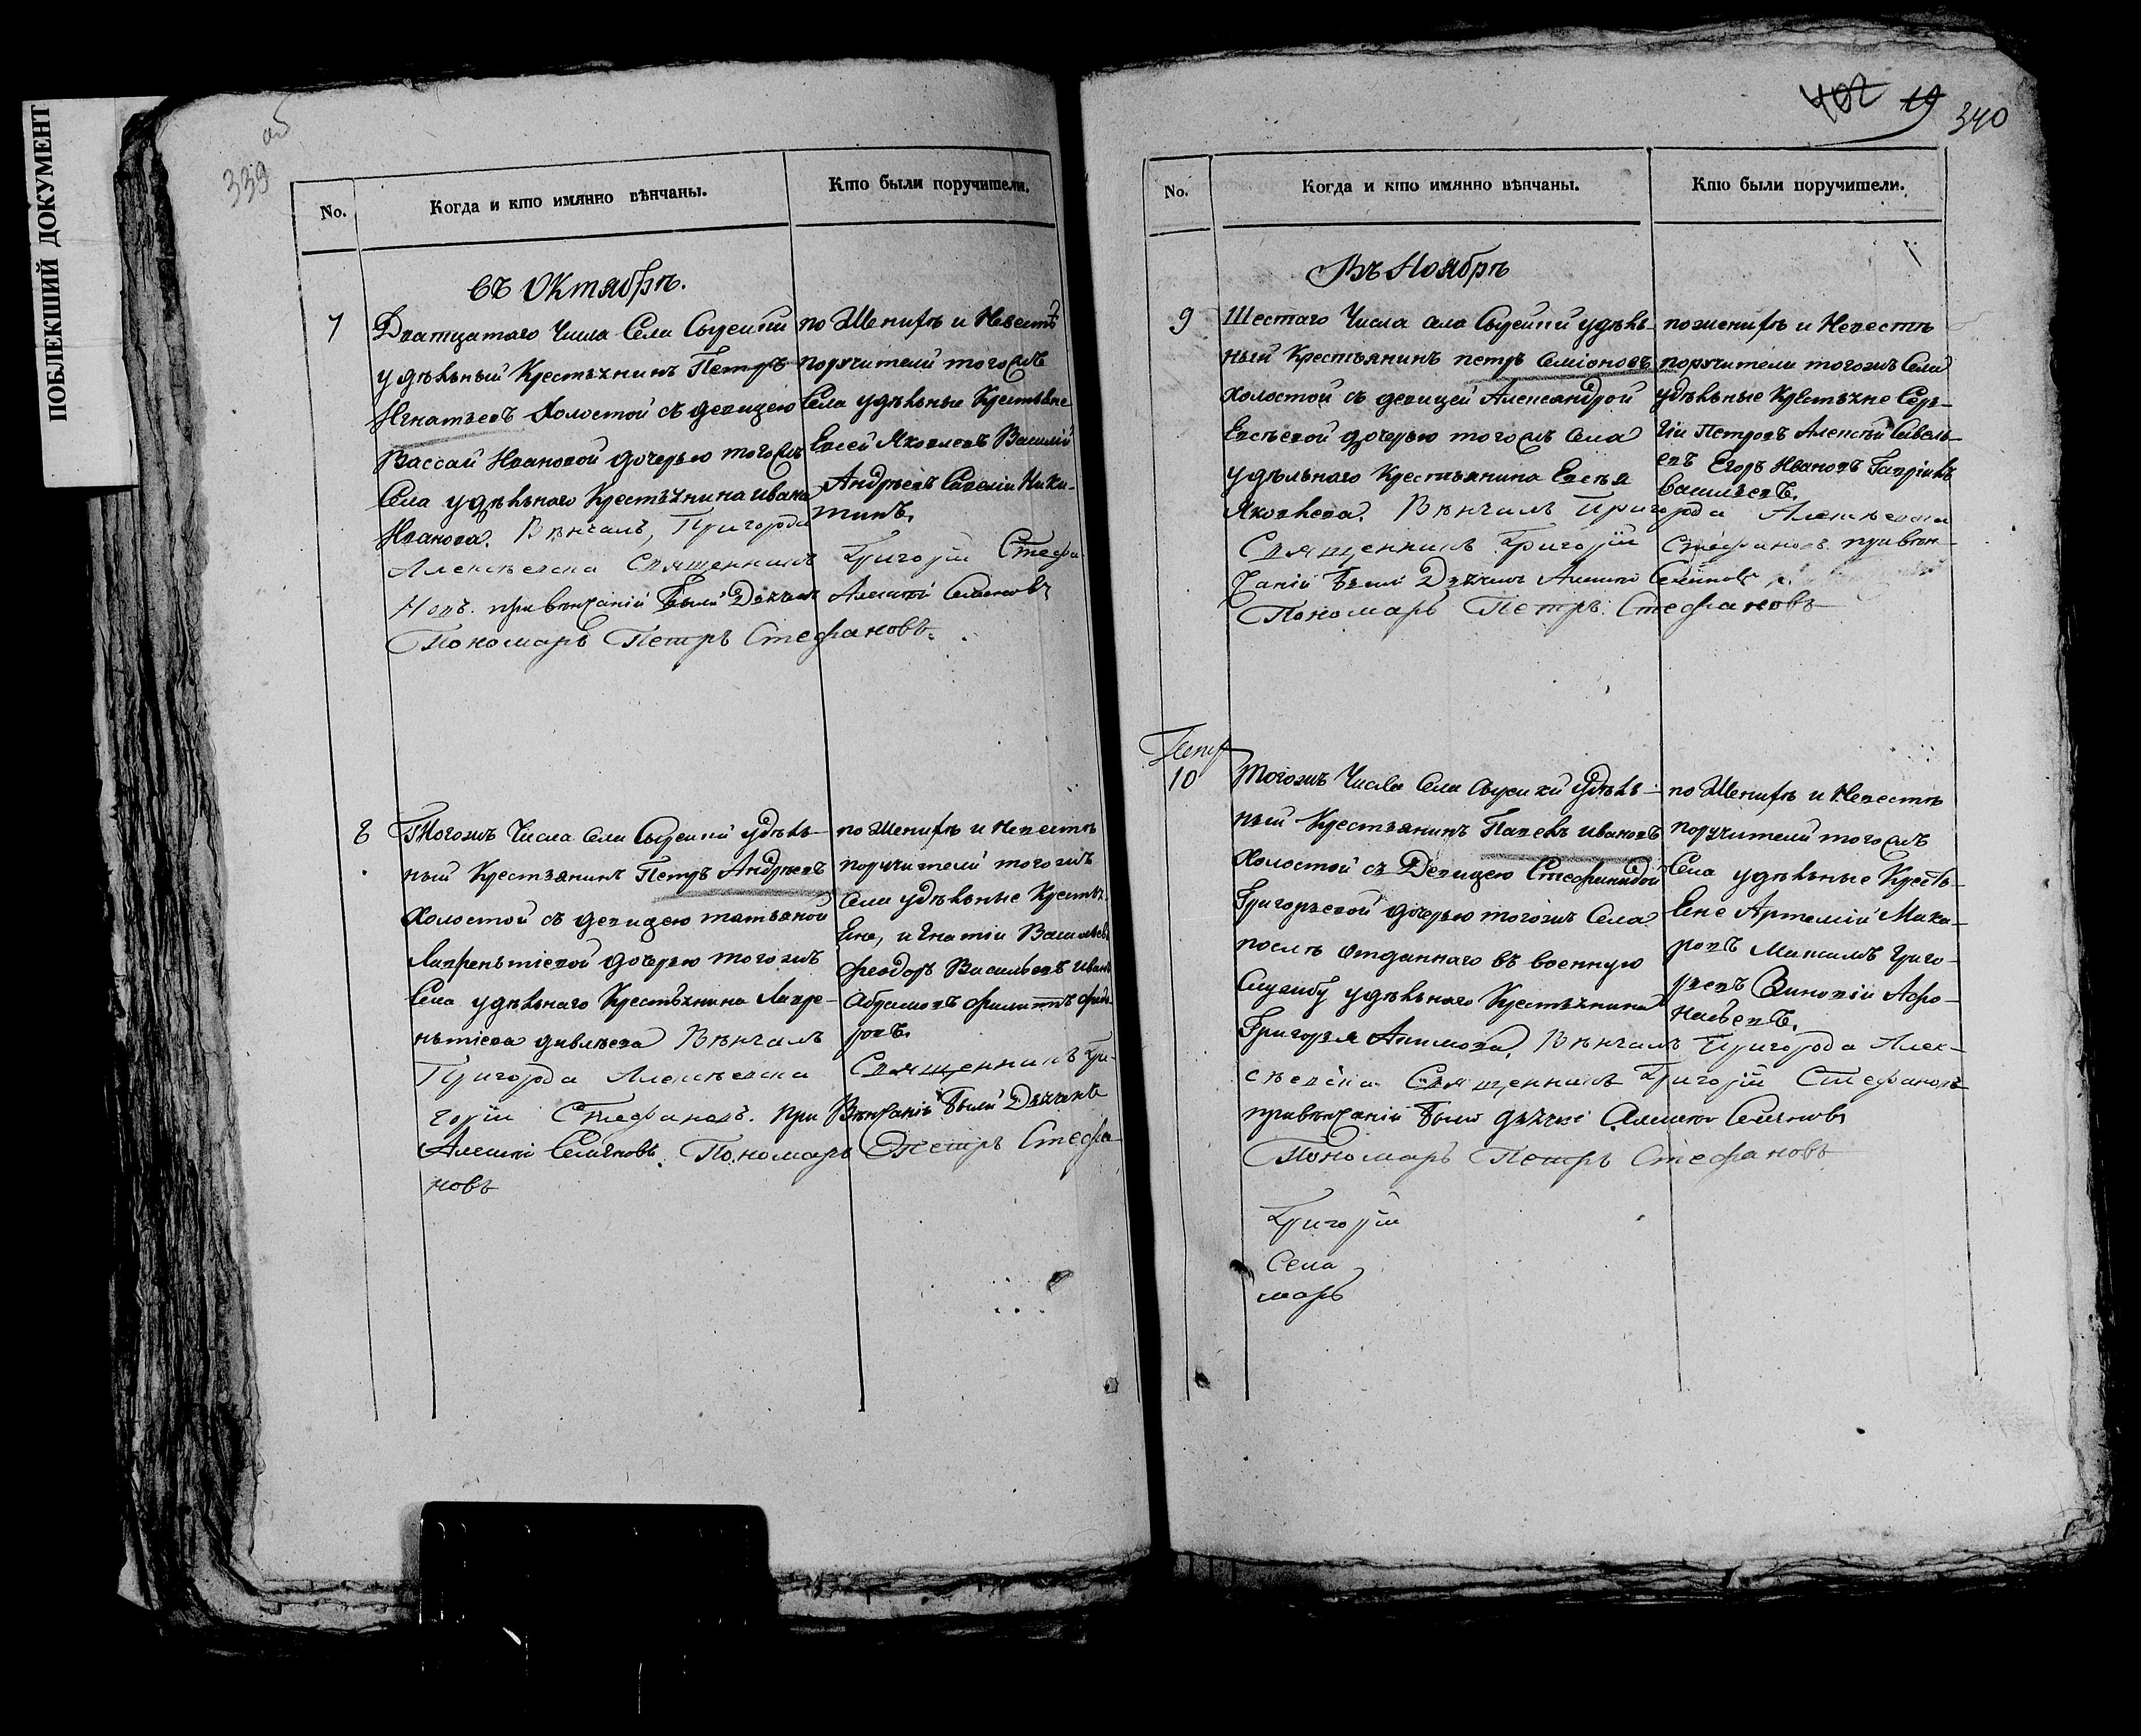 ПОБЛЕКШИЙ ДОКУМЕНТ
339 об
No.
Когда и кто имянно вѣнчаны.
Кто были поручители.
въ Октябрѣ.
7
Дватцатаго Числа Села Сырейки
удѣльный Крестьянинъ Петръ
Игнатьевъ Холостой съ девицею
Вассой Ивановой дочерью тогожъ
Села удѣльнаго Крестьянина Ивана
Иванова. Вѣнчалъ, Пригорода
Алексѣевска Священникъ Григорій Стефа
новъ. при вѣнчаніи были Дьячекъ Алексѣй Семеновъ
Пономарь Петръ Стефановъ.
по Женихѣ и Невестѣ
поручители тогожъ
Села удѣльные Крестьяне
Евсей Яковлевъ Василій
Андрѣевъ Савелій Ники-
тинъ.
8
Тогожъ Числа Села Сырейки удѣль-
ный Крестьянинъ Петръ Андрѣевъ
Холостой съ девицею татьяной
Лаврентіевой дочерью тогожъ
Села удѣльнаго Крестьянина Лавре-
нтіева Вѣнчалъ
Пригорода Алексѣевска Священникъ Гри-
горій Стефановъ. при Вѣнчаніи были Дьячекъ
Алексѣй Семеновъ. Пономарь Петръ Стефа-
новъ
по Женихѣ и Невестѣ
поручители тогожъ
Села удѣльные Крестья-
не, игнатіи Васильевъ
феодоръ Васильевъ иванъ
Абрамовъ филиппъ фидо-
ровъ.
402 19 340
No.
Когда и кто имянно вѣнчаны.
Кто были поручители.
Въ Ноябрѣ
9
Шестаго Числа села Сырейки удѣль-
ный Крестьянинъ петръ Семіоновъ
Холостой съ девицей Александрой
Евсѣевой дочерью тогожъ Села
удѣльнаго Крестьянина Евсея
Яковлева. Вѣнчалъ Пригорода Алексѣевска
Священникъ Григорій Стефановъ. при вѣн-
чаніи были Дьячекъ Алексѣй Семеновъ
Пономарь Петръ Стефановъ
по женихѣ и Невестѣ
поручители тогожъ Села
удѣльные Крестьяне Сер-
гіи Петровъ Алексѣй Савель-
евъ Егоръ Ивановъ Гаврілъ
Васильевъ.
Петр
10
Тогожъ Числа Села Сырейки удѣль-
ный Крестьянинъ Павелъ ивановъ
Холостой съ Девицею Стефанидой
Григорьевой дочерью тогожъ Села
послѣ отданнаго въ военную
Службу удѣльнаго Крестьянина
Григорья Акимова. Вѣнчалъ Пригорода Алек-
сѣевска Священникъ Григорій Стефановъ
при вѣнчаніи были дьячекъ Алексѣй Семеновъ
Пономарь Петръ Стефановъ
по Женихѣ и Невестѣ
поручители тогожъ
Села удѣльные Кресть-
яне Артемій Мака-
ровъ Максимъ Григо-
рьевъ Зиновій Афо-
насьевъ.
Григорій
Села
марь